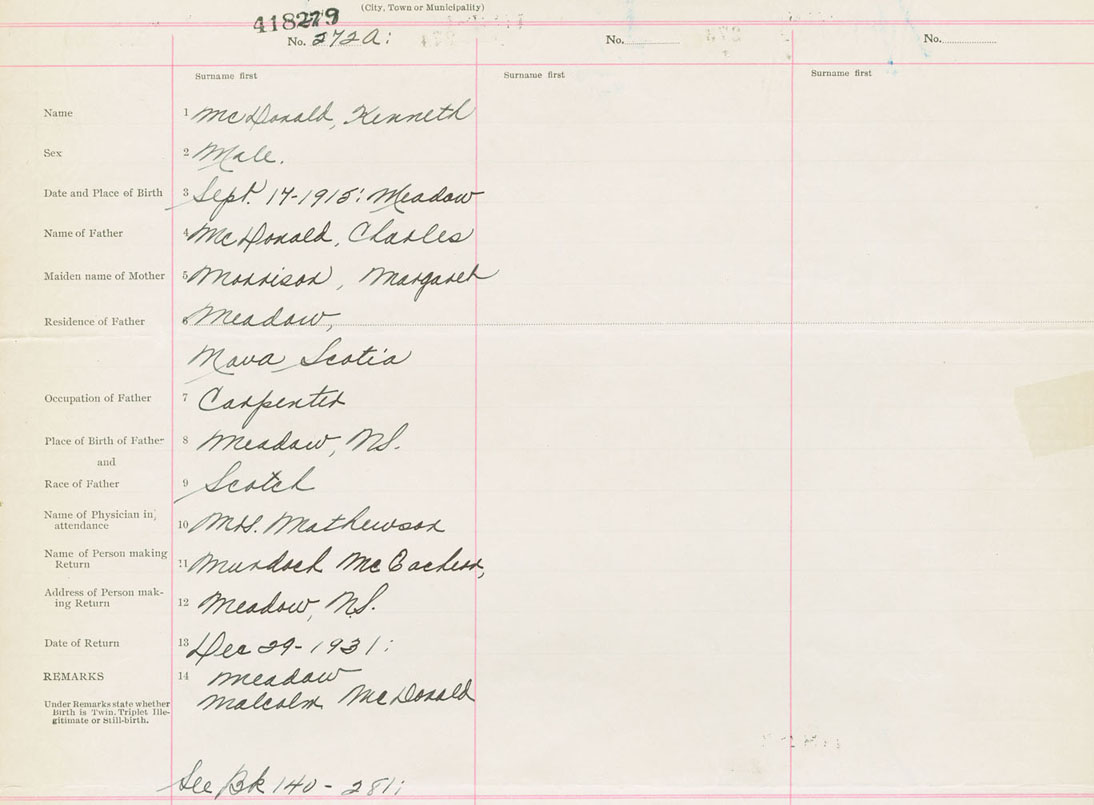 (City, Town or Municipality)
418279
No. 272A: No. No.
Surname first Surname first Surname first
Name 1 McDonald, Kenneth
Sex 2 Male.
Date and Place of Birth 3 Sept. 17-1915: Meadow
Name of Father 4 McDonald, Charles
Maiden name of Mother 5 Morrison, Margaret
Residence of Father 6 Meadow,
Nova Scotia
Occupation of Father 7 Carpenter
Place of Birth of Father 8 Meadow, NS.
and
Race of Father 9 Scotch
Name of Physician in
attendance 10 Mrs. Mathewson
Name of Person making
Return 11 Murdoch McEachern,
Address of Person mak-
ing Return 12 Meadow, NS.
Date of Return 13 Dec 29-1931:
REMARKS 14 Meadow
Malcolm McDonald
Under Remarks state whether
Birth is Twin, Triplet Ille-
gitimate or Still-birth.
See Bk 140 - 281: